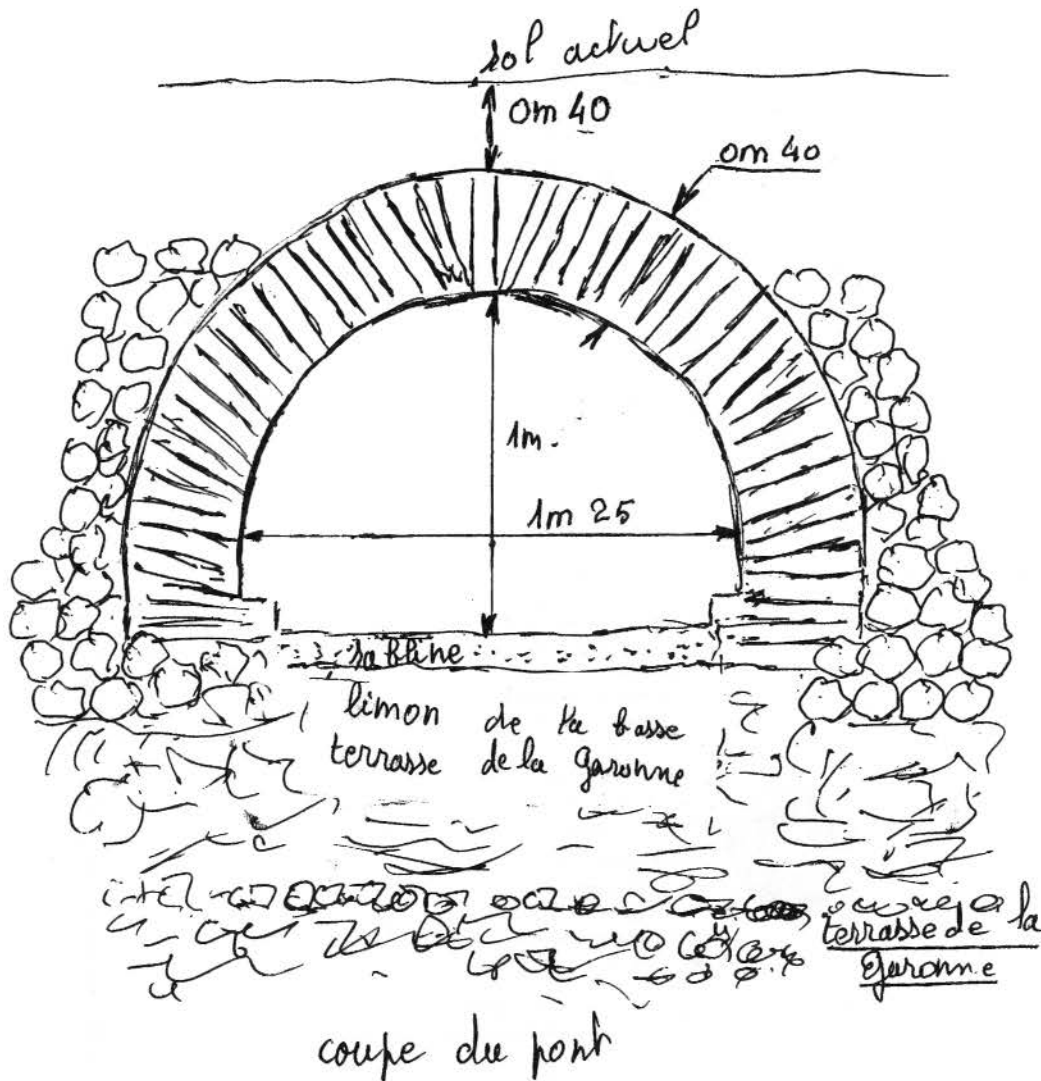 sol actuel
0m 40
0m 40
1m.
1m 25
sabline
limon de la basse
terrasse de la Garonne
terrasse de la
Garonne
coupe du pont